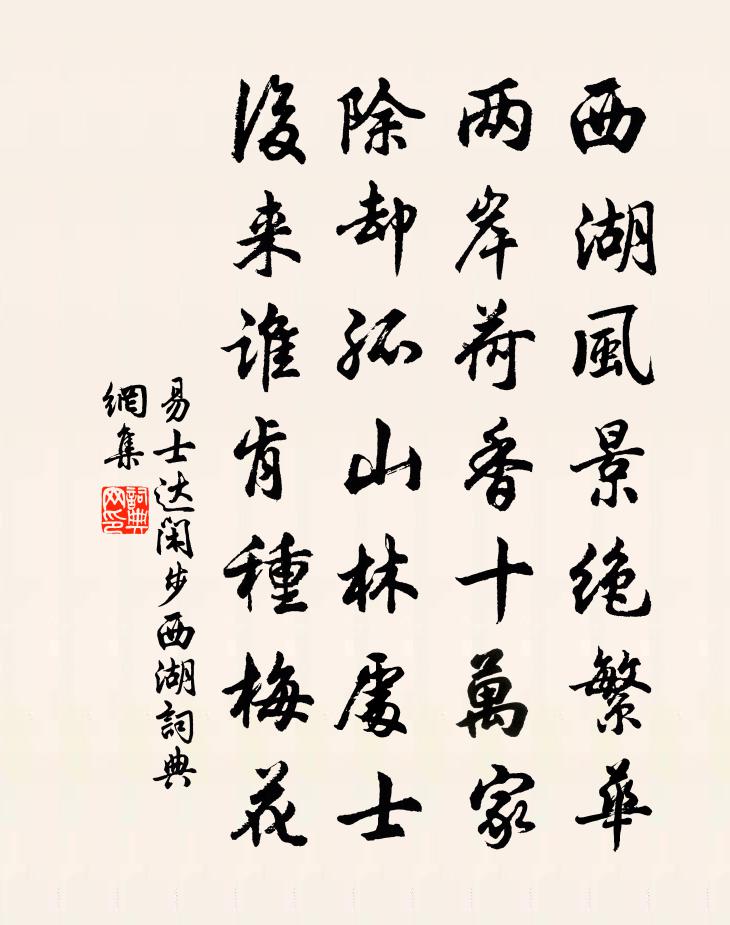 西湖風景絶繁華
两岸荷香十萬家
除却孤山林處士
後来誰肯種梅花
易士达閑步西湖詞典
網集
詞典網印